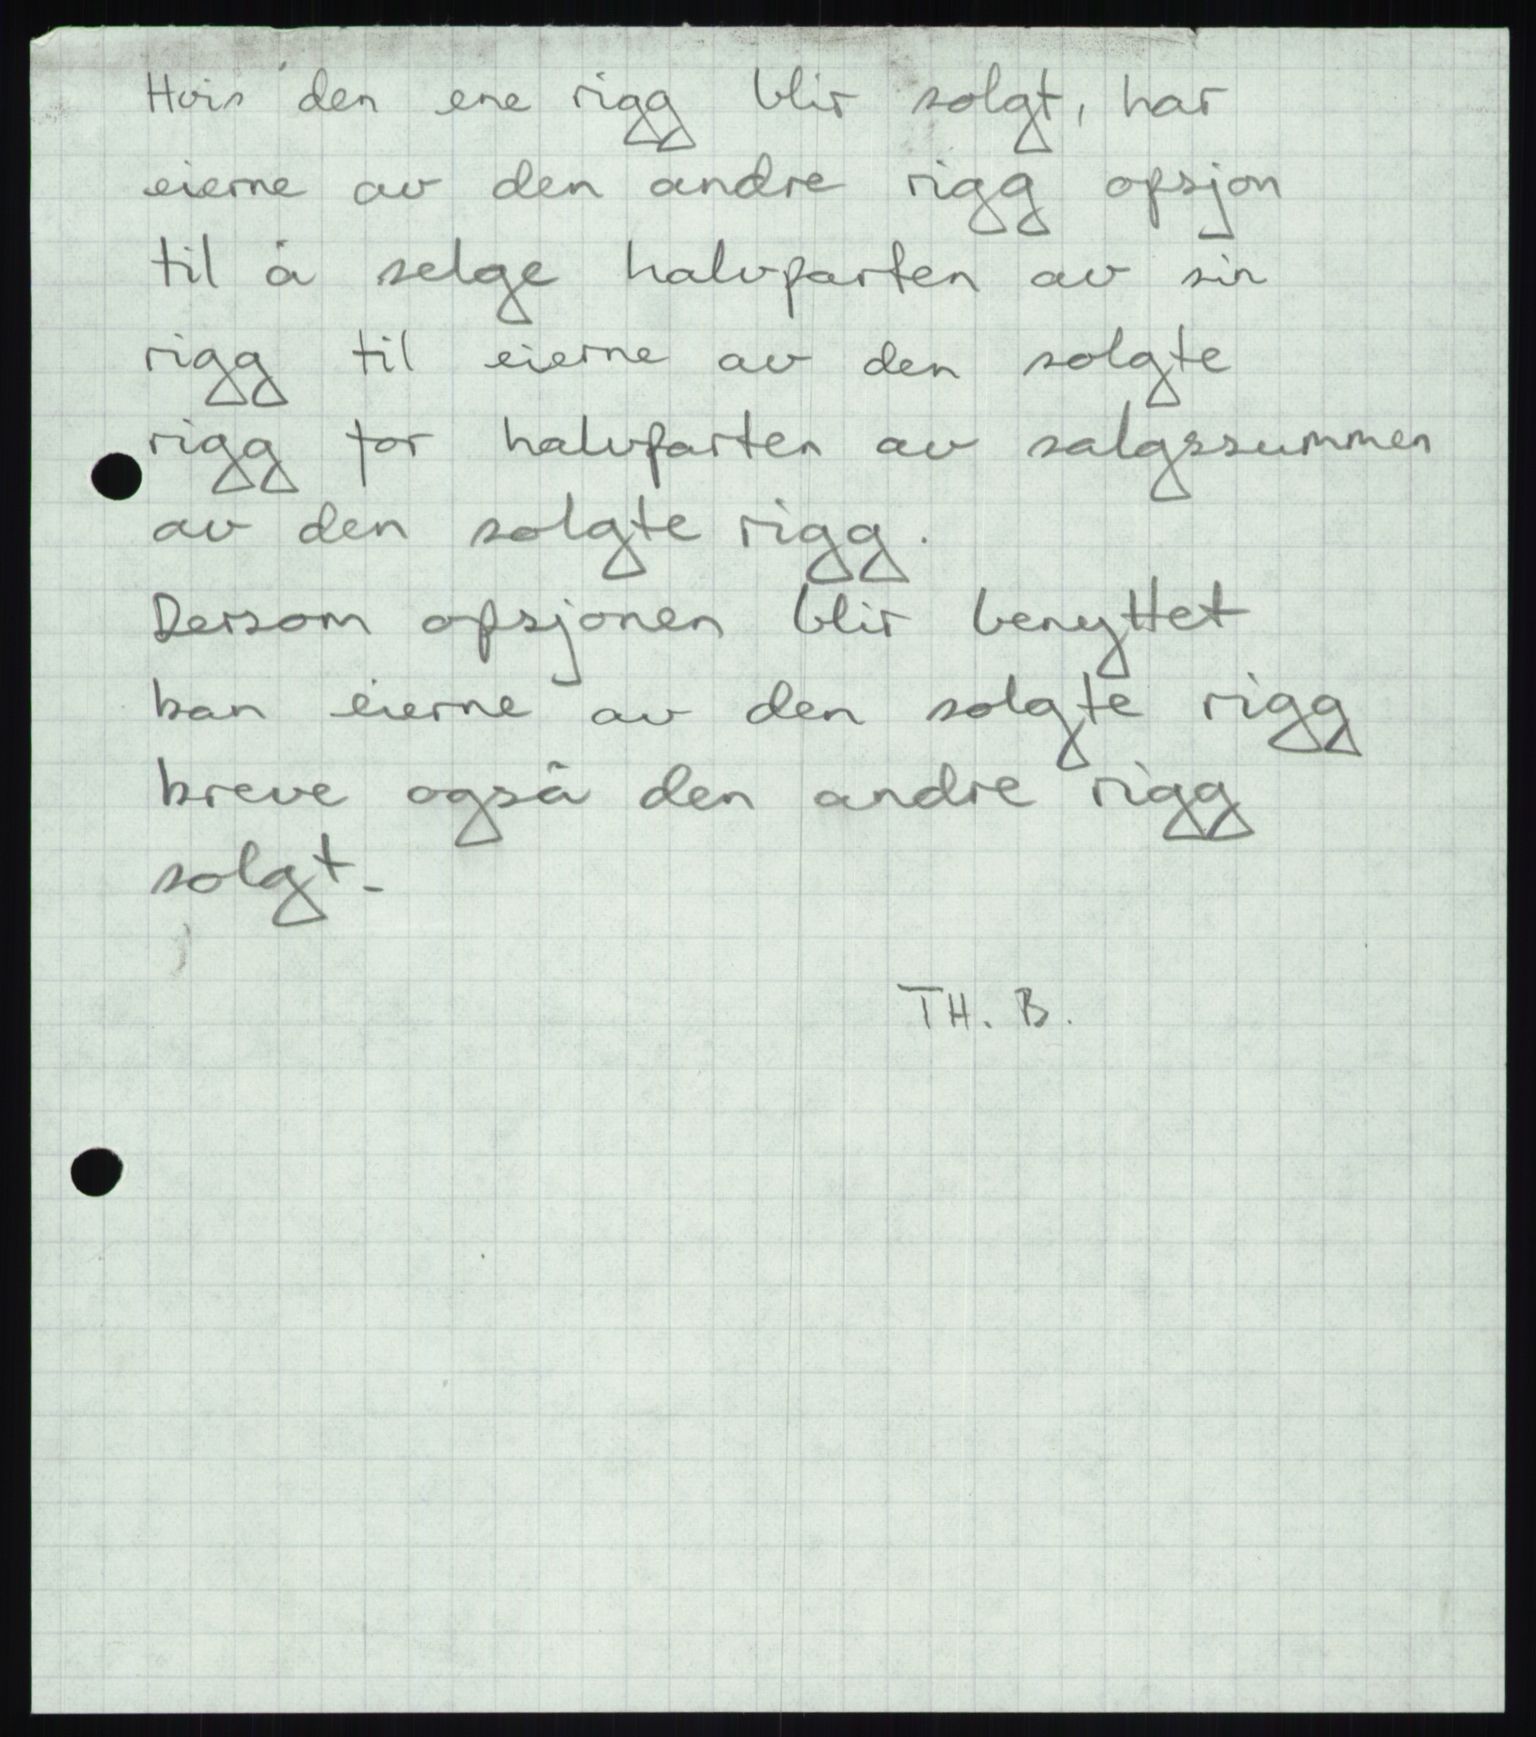 Hvis den ene rigg blir solgt, har
eierne av den andre rigg opsjon
til å selge halvparten av sin
rigg til eierne av den solgte
rigg for halvparten av salgssummen
av den solgte rigg.
Dersom opsjonen blir benyttet
kan eierne av den solgte rigg
kreve også den andre rigg
solgt.
TH. B.